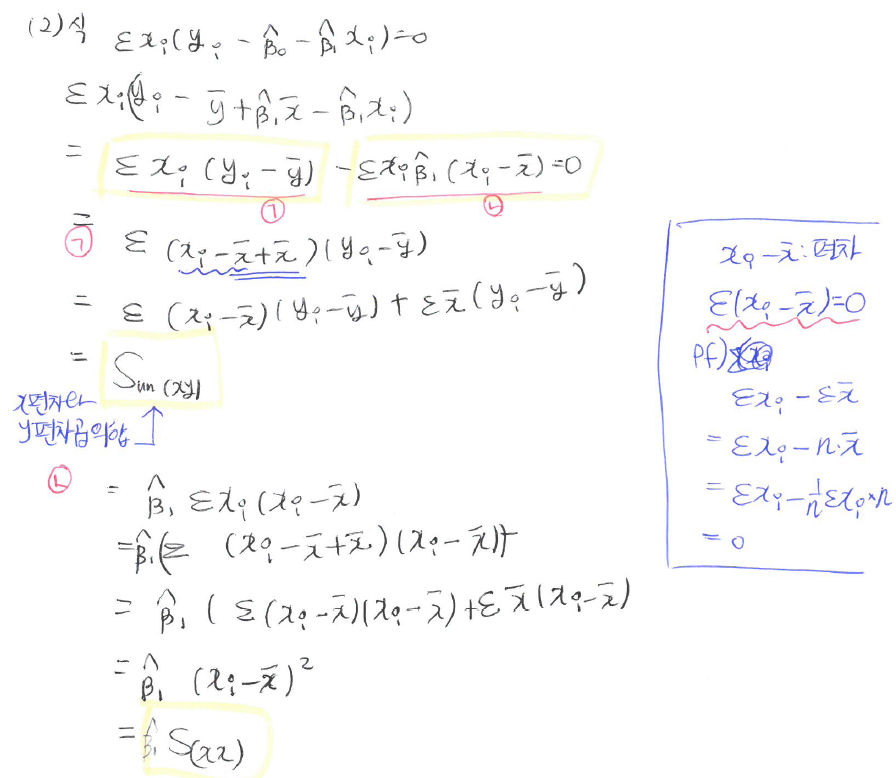 (2)식 Σxᵢ(yᵢ - β̂₀ - β̂₁xᵢ)=0
Σxᵢ(yᵢ - ȳ + β̂₁x̄ - β̂₁xᵢ)
= Σxᵢ(yᵢ - ȳ) - Σxᵢβ̂₁(xᵢ - x̄)=0
㉠ ㉡
=
㉠ Σ(xᵢ - x̄ + x̄)(yᵢ - ȳ)
= Σ(xᵢ - x̄)(yᵢ - ȳ) + Σx̄(yᵢ - ȳ)
= S (xy)
x편차와
y편차곱의합
㉡ = β̂₁ Σxᵢ(xᵢ - x̄)
= β̂₁(Σ (xᵢ - x̄ + x̄)(xᵢ - x̄)
= β̂₁ ( Σ(xᵢ - x̄)(xᵢ - x̄) + Σx̄(xᵢ - x̄)
= β̂₁ (xᵢ - x̄)²
= β̂₁ S(xx)
xᵢ - x̄ : 편차
Σ(xᵢ - x̄)=0
pf)
Σxᵢ - Σx̄
= Σxᵢ - n·x̄
= Σxᵢ - 1/n Σxᵢ × n
= 0